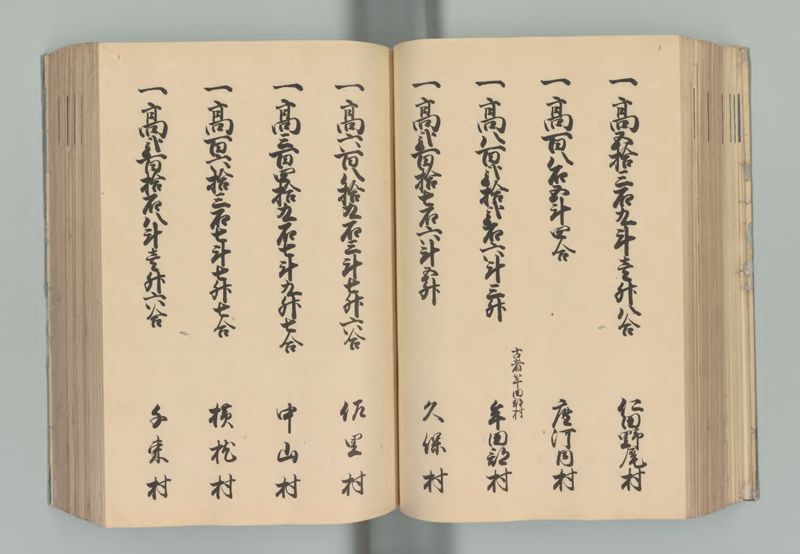 一高五拾三石九斗壱升八合 仁田野尾村
一高百八石五斗四合 座河内村
古者竿田部村
一高八百弐拾弐石六斗三升 牟田部村
一高弐百拾七石六斗五升 久保村
一高六百八拾九石三斗七升六合 佐里村
一高三百四拾九石七斗九升七合 中山村
一高百六拾三石七斗七升七合 横枕村
一高弐百拾石八斗壱升六合 千束村